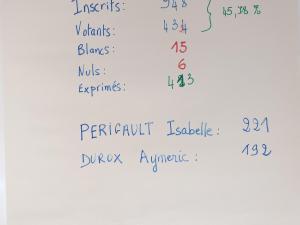 Inscrits: 948
Votants: 434 45,78 %
Blancs: 15
Nuls: 6
Exprimés: 413
PERIGAULT Isabelle: 221
DUROX Aymeric: 192